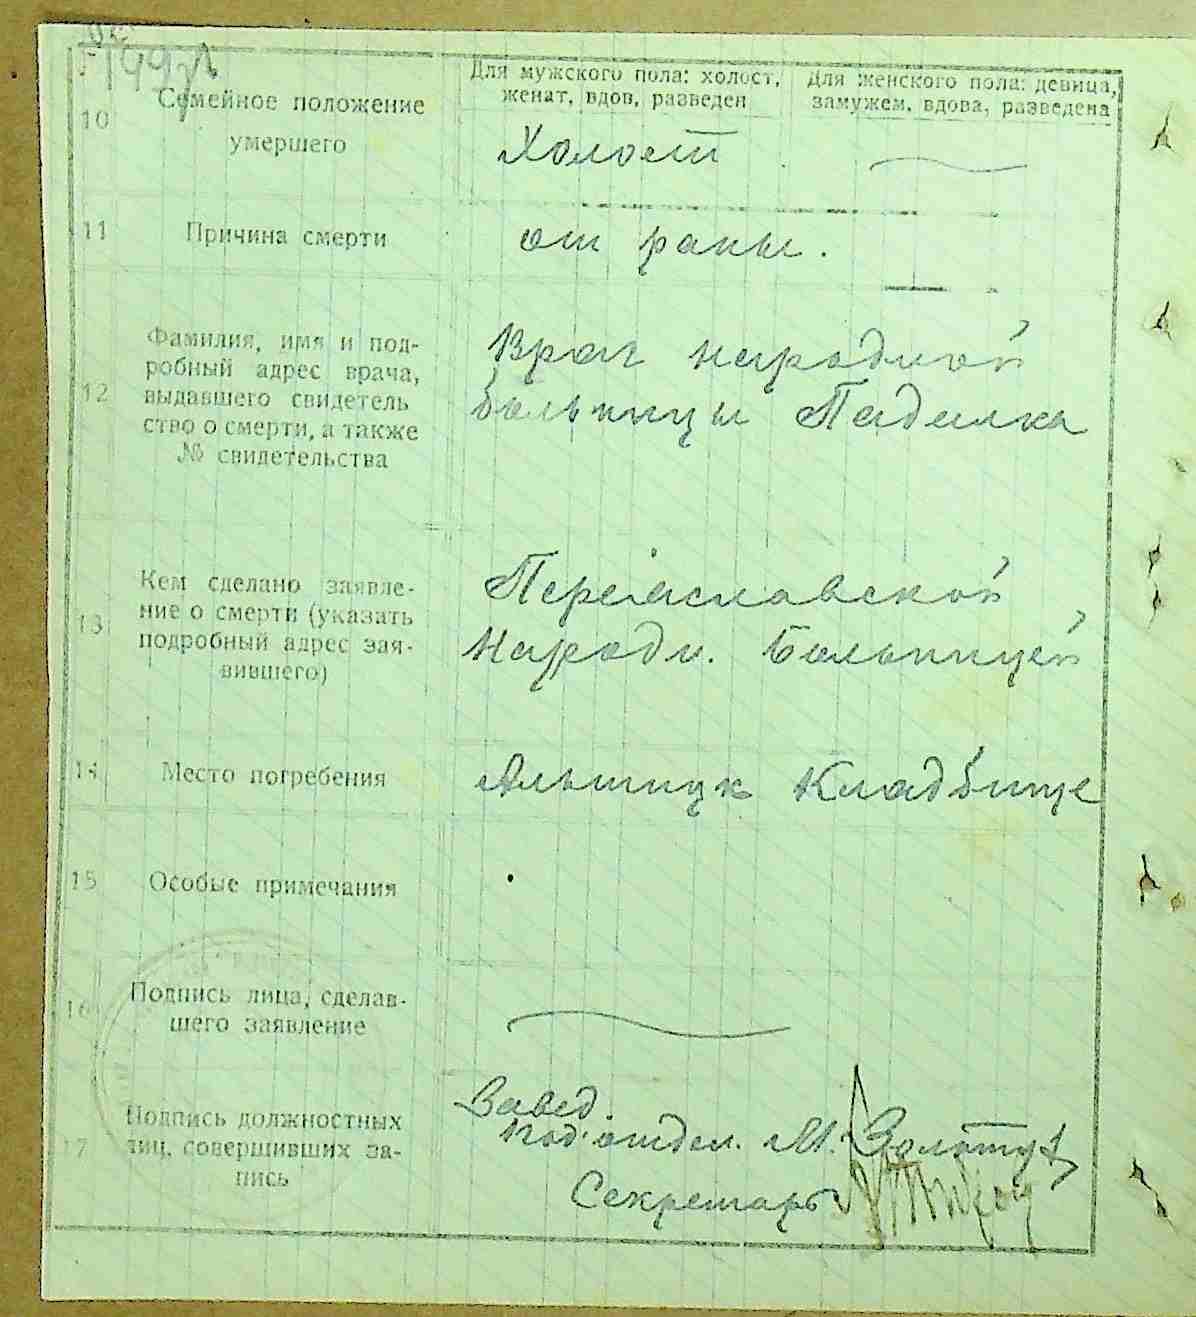 Для мужского пола: холост,
женат, вдов, разведен
Для женского пола: девица,
замужем, вдова, разведена
10
Семейное положение
умершего
Холост
11
Причина смерти
от раны.
12
Фамилия, имя и под-
робный адрес врача,
выдавшего свидетель
ство о смерти, а также
№ свидетельства
Врач народной
больницы Падалка
13
Кем сделано заявле-
ние о смерти (указать
подробный адрес зая-
вившего)
Переяславской
Народн. Больницей
14
Место погребения
Кладбище
15
Особые примечания
16
Подпись лица, сделав-
шего заявление
17
Подпись должностных
лиц, совершивших за-
пись
Завед.
под. отдел. М. Золоту
Секретарь